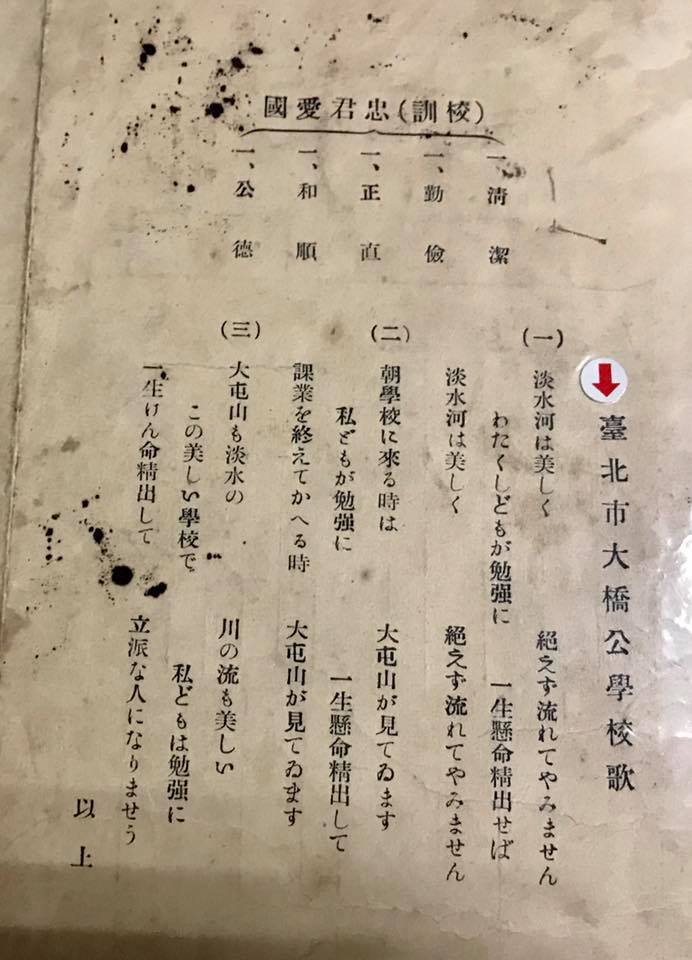 臺北市大橋公學校歌
(一)
淡水河は美しく　絕えず流れてやみません
わたくしどもが勉强に　一生懸命精出せば
淡水河は美しく　絕えず流れてやみません
(二)
朝學校に來る時は　大屯山が見てゐます
私どもが勉强に　一生懸命精出して
課業を終えてかへる時　大屯山が見てゐます
(三)
大屯山も淡水の　川の流も美しい
この美しい學校で　私どもは勉强に
一生けん命精出して　立派な人になりませう
以上
(校訓)忠君愛國
一、清潔
一、勤儉
一、正直
一、和順
一、公德